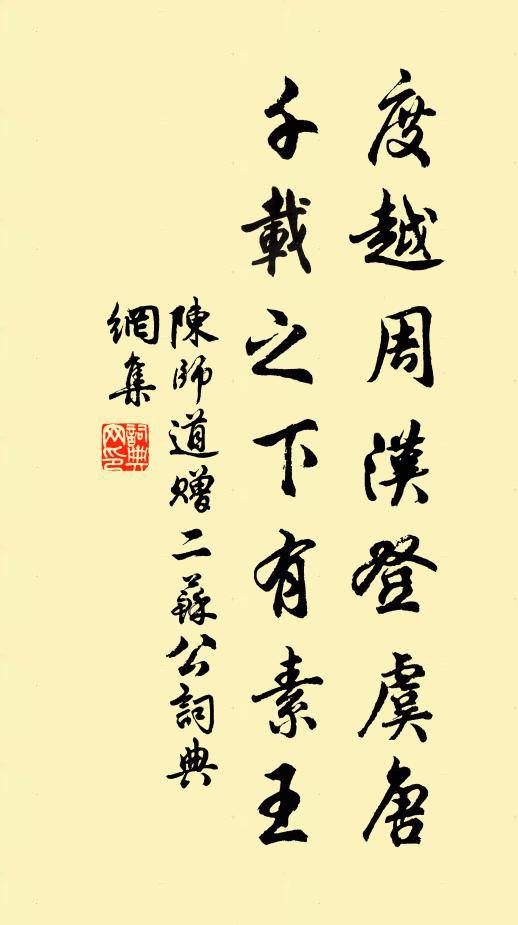 度越周漢登虞唐
千載之下有素王
陳師道贈二蘇公詞典
網集
詞典
网印